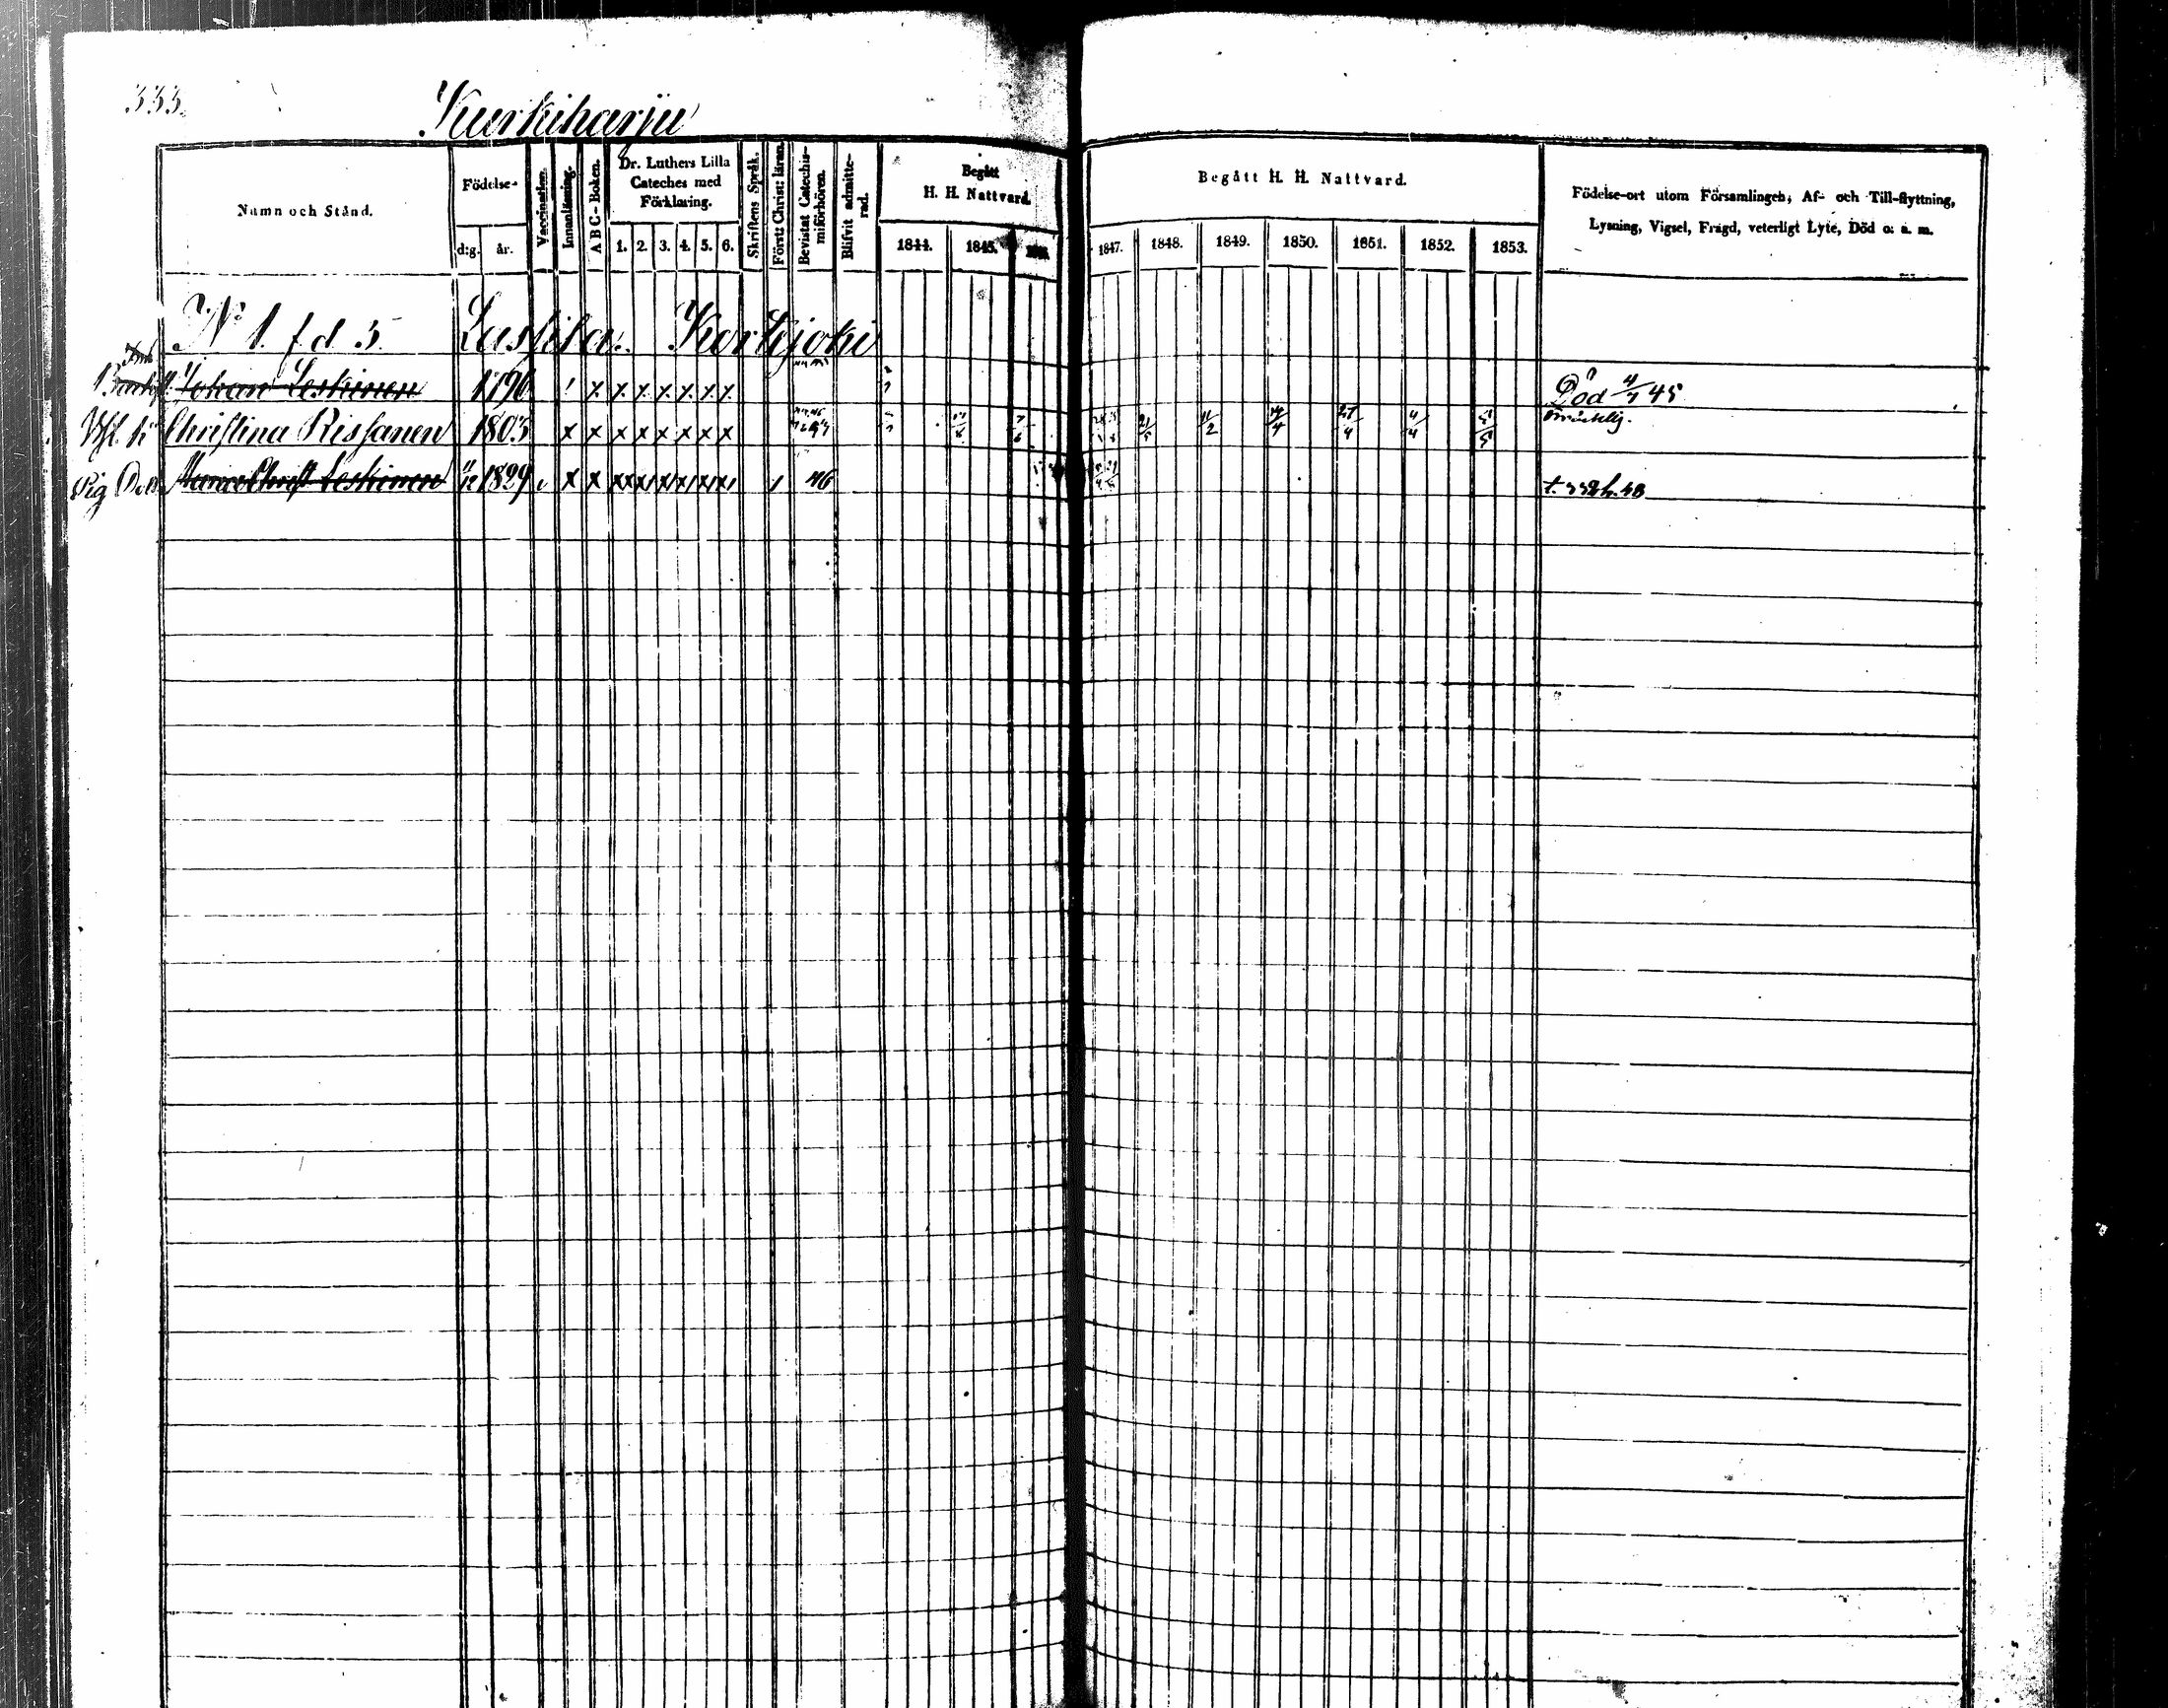 333.
Kurkiharju
Namn och Stånd.
Födelse-
d:g. år.
Vaccination.
Innanläsning.
A B C - Boken.
Dr. Luthers Lilla
Cateches med
Förklaring.
1. 2. 3. 4. 5. 6.
Skriftens Språk.
Förstt Christ: läran.
Bevistat Catechis-
miförhören.
Blifvit admitte-
rad.
Begått
H. H. Nattvard.
1844. 1845.
Begått H. H. Nattvard.
1847. 1848. 1849. 1850. 1851. 1852. 1853.
Födelse-ort utom Församlingen, Af- och Till-flyttning,
Lysning, Vigsel, Frägd, veterligt Lyte, Död o. a. m.
No 1. f d 5. Lassila. Korkjoki
Johan Leskinen 1796 x x x x x x x Död 4/7 45
Christina Rissanen 1803 x x x x x x x x 21/5 11/2 14/4 27/4 4/4 5/5
Pig D. Maria Christ Leskinen 11/12 1829 x x x x x x x x 46 t. 332 h. 48